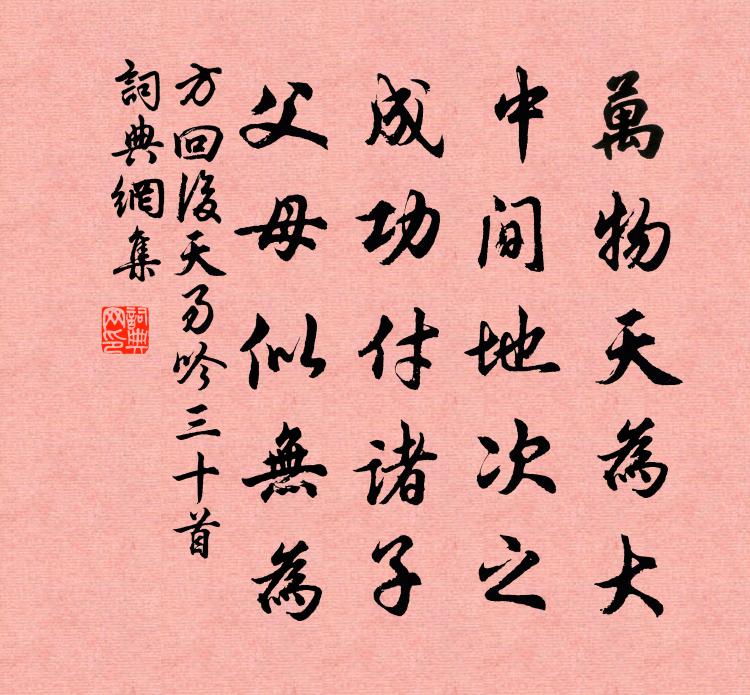 萬物天為大
中間地次之
成功付諸子
父母似無為
方回後天易吟三十首
詞典網集
詞典網印